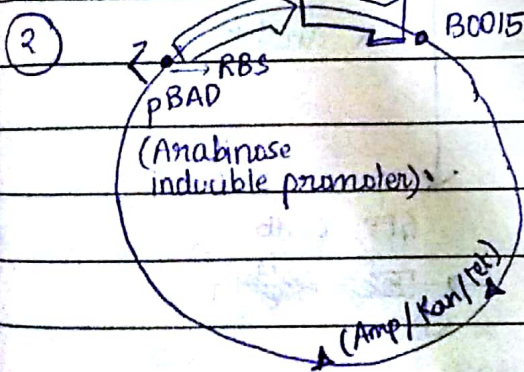 2
B0015
RBS
pBAD
(Arabinose
inducible promoter)
(Amp/Kan/tet)